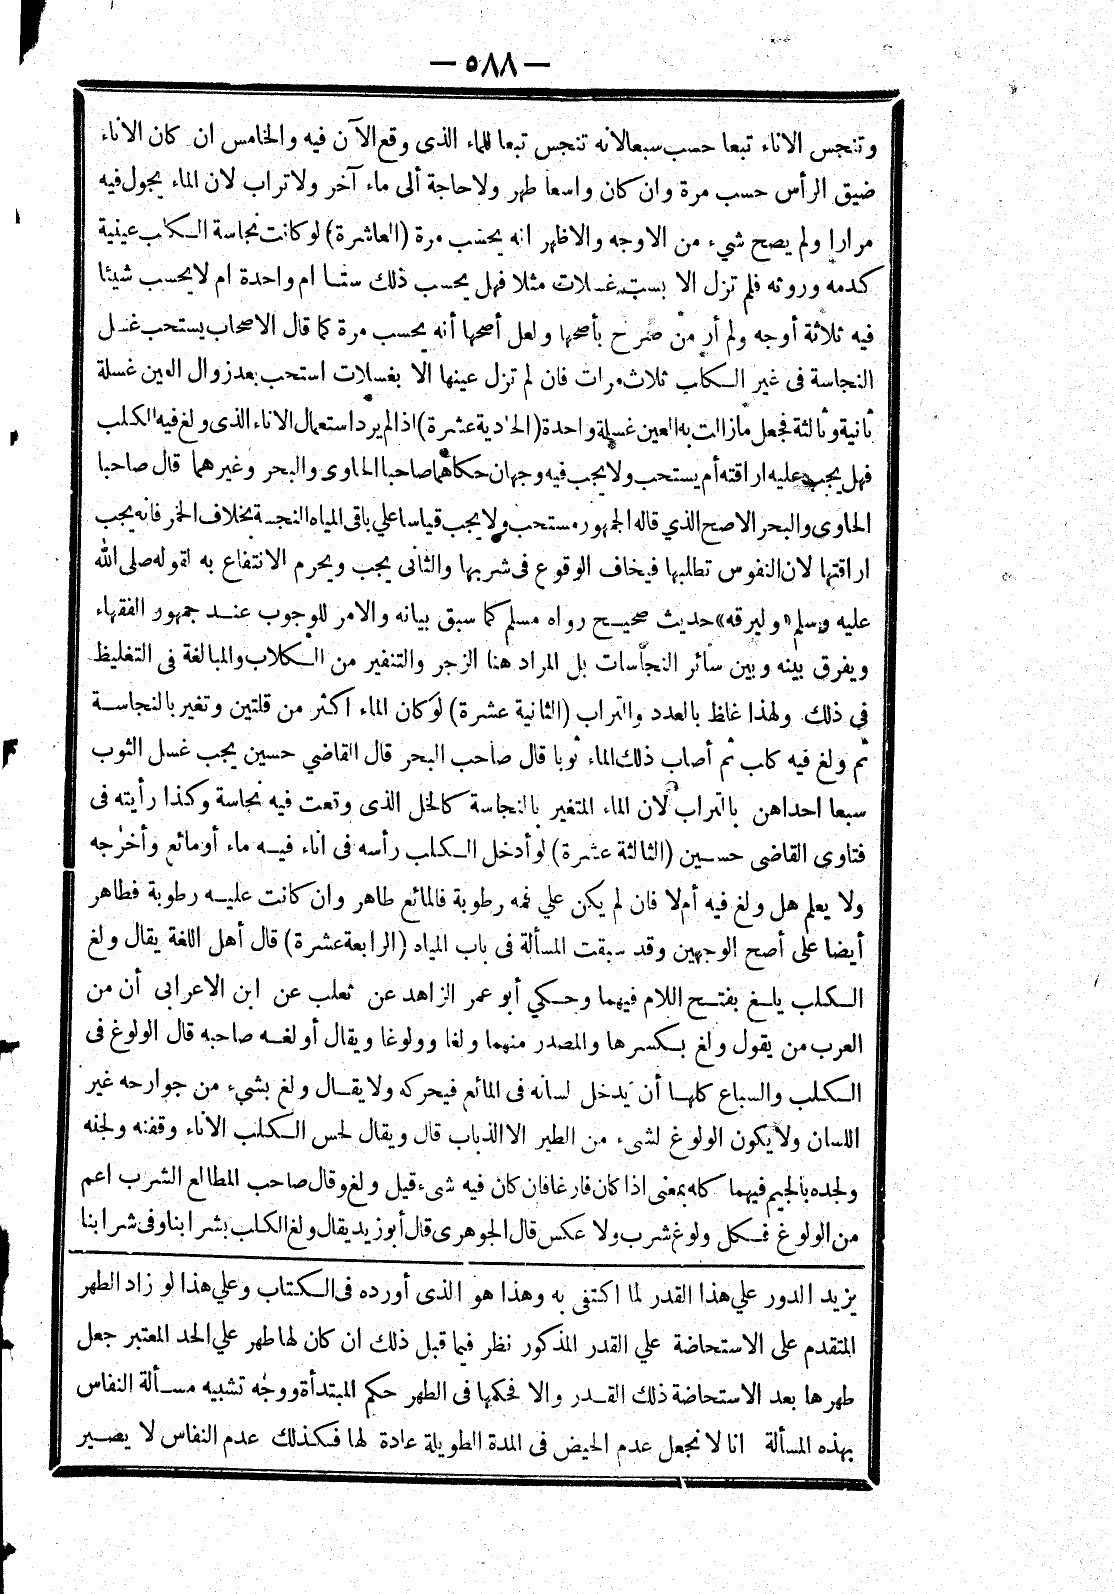 — ٥٨٨ —
وتنجس الاناء تبعا حسب سبعالانه تنجس تبعا للماء الذى وقع الآن فيه والخامس ان كان الاناء
ضيق الرأس حسب مرة وان كان واسعا طهر ولا حاجة ألى ماء آخر ولا تراب لان الماء يجول فيه
مرارا ولم يصح شىء من الاوجه والاظهر انه يحسب مرة (العاشرة) لو كانت نجاسة الكلب عينية
كدمه وروثه فلم تزل الا بست غسلات مثلا فهل يحسب ذلك ستا ام واحدة ام لا يحسب شيئا
فيه ثلاثة أوجه ولم أر من صرح بأصحها ولعل أصحها أنه يحسب مرة كما قال الاصحاب يستحب غسل
النجاسة فى غير الكلب ثلاث مرات فان لم تزل عينها الا بغسلات استحب بعد زوال العين غسلة
ثانية وثالثة فجعل مازالت به العين غسلة واحدة (الحادية عشرة) اذا لم يرد استعمال الاناء الذى ولغ فيه الكلب
فهل يجب عليه اراقته أم يستحب ولا يجب فيه وجهان حكاهما صاحبا الحاوى والبحر وغيرهما قال صاحبا
الحاوى والبحر الاصح الذي قاله الجمهور مستحب ولا يجب قياسا علي باقى المياه النجسة بخلاف الخمر فانه يجب
اراقتها لان النفوس تطلبها فيخاف الوقوع فى شربها والثانى يجب ويحرم الانتفاع به لقوله صلى الله
عليه وسلم «وليرقه» حديث صحيح رواه مسلم كما سبق بيانه والامر للوجوب عند جمهور الفقهاء
ويفرق بينه وبين سائر النجاسات بل المراد هنا الزجر والتنفير من الكلاب والمبالغة فى التغليظ
في ذلك ولهذا غلظ بالعدد والتراب (الثانية عشرة) لو كان الماء اكثر من قلتين وتغير بالنجاسة
ثم ولغ فيه كلب ثم أصاب ذلك الماء ثوبا قال صاحب البحر قال القاضي حسين يجب غسل الثوب
سبعا احداهن بالتراب لان الماء المتغير بالنجاسة كالخل الذى وقعت فيه نجاسة وكذا رأيته فى
فتاوى القاضى حسين (الثالثة عشرة) لو أدخل الكلب رأسه فى اناء فيه ماء أو مائع وأخرجه
ولا يعلم هل ولغ فيه أم لا فان لم يكن علي فمه رطوبة فالمائع طاهر وان كانت عليه رطوبة فطاهر
أيضا على أصح الوجهين وقد سبقت المسألة فى باب المياه (الرابعة عشرة) قال أهل اللغة يقال ولغ
الكلب يلغ بفتح اللام فيهما وحكي أبو عمر الزاهد عن ثعلب عن ابن الاعرابى أن من
العرب من يقول ولغ بكسرها والمصدر منهما ولغا وولوغا ويقال أولغه صاحبه قال الولوغ فى
الكلب والسباع كلها أن يدخل لسانه فى المائع فيحركه ولا يقال ولغ بشيء من جوارحه غير
اللسان ولا يكون الولوغ لشىء من الطير الا الذباب قال ويقال لحس الكلب الاناء وقفنه ولجنه
ولجده بالجيم فيهما كله بمعنى اذا كان فارغا فان كان فيه شىء قيل ولغ وقال صاحب المطالع الشرب اعم
من الولوغ فكل ولوغ شرب ولا عكس قال الجوهرى قال أبو زيد يقال ولغ الكلب بشرابنا وفى شرابنا
يزيد الدور علي هذا القدر لما اكتفى به وهذا هو الذى أورده فى الكتاب وعلي هذا لو زاد الطهر
المتقدم على الاستحاضة علي القدر المذكور نظر فيما قبل ذلك ان كان لها طهر علي الحد المعتبر جعل
طهرها بعد الاستحاضة ذلك القدر والا فحكمها فى الطهر حكم المبتدأة ووجه تشبيه مسألة النفاس
بهذه المسألة انا لا نجعل عدم الحيض فى المدة الطويلة عادة لها فكذلك عدم النفاس لا يصير